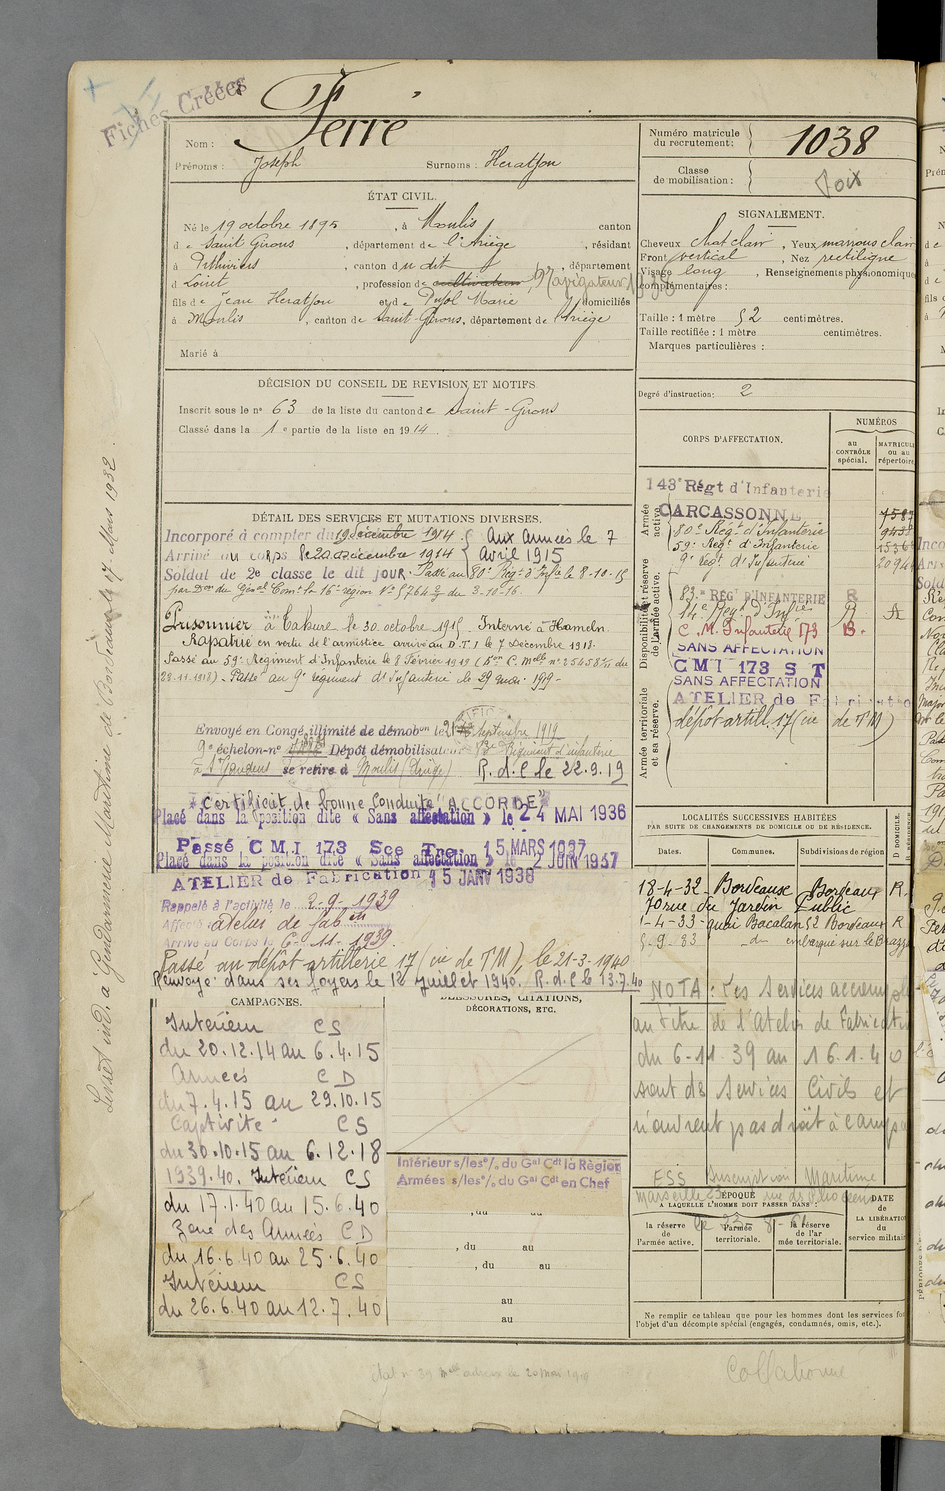 Fiches Créées
Ferré
Nom :
Prénoms : Joseph Surnoms : Heratjou
Numéro matricule du recrutement : 1038
Classe de mobilisation :
Foix
ÉTAT CIVIL.
Né le 19 octobre 1895, à Moulis canton
de Saint Girons, département de l'Ariège, résidant
à Pithiviers, canton du dit, département
d Loiret, profession de cultivateur Navigateur
fils de Jean Heratjou et de Pujol Marie domiciliés
à Moulis, canton de Saint-Girons, département de l'Ariège
Marié à
SIGNALEMENT.
Cheveux chat clair, Yeux marrons clair
Front vertical, Nez rectiligne
Visage long, Renseignements physionomique
complémentaires :
Taille : 1 mètre 52 centimètres.
Taille rectifiée : 1 mètre centimètres.
Marques particulières :
Degré d'instruction : 2
DÉCISION DU CONSEIL DE REVISION ET MOTIFS.
Inscrit sous le n° 63 de la liste du canton de Saint-Girons
Classé dans la 1e partie de la liste en 1914.
CORPS D'AFFECTATION.
NUMÉROS
au CONTRÔLE spécial.
MATRICULE ou au répertoire
Armée active.
143e Régt d'Infanterie
CARCASSONNE
80e Régt d'Infanterie 9433
59e Régt d'Infanterie
9e Régt d'Infanterie
Disponibilité et réserve de l'armée active.
83e RÉGT D'INFANTERIE
14e Regt d'Infie
C. M. Infanterie 173 B.
SANS AFFECTATION
CMI 173 S T
SANS AFFECTATION
Armée territoriale et sa réserve.
ATELIER de Fabricatio
dépôt artill. 17 (cie de TM)
DÉTAIL DES SERVICES ET MUTATIONS DIVERSES.
Incorporé à compter du 19 décembre 1914 Aux Armées le 7
Arrivé au corps le 20 décembre 1914 Avril 1915
Soldat de 2e classe le dit jour. Passé au 80e Régt d'Infie le 8-10-15
par Don du Génal Comt la 16e région No 5764 du 3-10-16.
Prisonnier à Tahure le 30 octobre 1915. Interné à Hameln.
Rapatrié en vertu de l'armistice arrivé au D.T.I le 7 Décembre 1918.
Passé au 59e Régiment d'Infanterie le 8 Février 1919
28.11.1918) - Passé au 9e régiment d'Infanterie le 29 mai 1919 -
Envoyé en Congé illimité de démobon le 21 Septembre 1919
9e échelon - no Dépôt démobilisateur Régiment d'infanterie
à St Gaudens se retire à Moulis (Ariège) R.d.C le 22.9.19
Certificat de bonne Conduite "ACCORDÉ"
Placé dans la position dite « Sans affectation » le 24 MAI 1936
Passé CMI 173 Sce Tne. 15 MARS 1937
Placé dans la position dite « Sans affectation » le 2 JUIN 1937
ATELIER de Fabrication 15 JANV 1938
Rappelé à l'activité le 2-9-1939
Affecté atelier de fabon
Arrivé au Corps le 6-11-1939.
Passé au dépôt artillerie 17 (cie de TM), le 21-3-1940
Renvoyé dans ses foyers le 12 juillet 1940. R.d.C le 13.7.40
LOCALITÉS SUCCESSIVES HABITÉES
PAR SUITE DE CHANGEMENTS DE DOMICILE OU DE RÉSIDENCE.
Dates. Communes. Subdivisions de région D DOMICILE.
18-4-32 Bordeaux Bordeaux R.
70 rue du Jardin Public
1-4-33 quai Bacalan 52 Bordeaux R
5-9-33 do embarqué sur le Brazza
NOTA : Les services accomplis
au titre de l'Atelier de Fabricatio
du 6-11.39 au 16.1.40
sont des Services Civils et
n'ouvrent pas droit à campa
ESS Inscription Maritime
Marseille
ÉPOQUE
A LAQUELLE L'HOMME DOIT PASSER DANS :
la réserve de l'armée active.
l'armée territoriale.
la réserve de l'armée territoriale.
DATE DE LA LIBÉRATION du service militaire
Ne remplir ce tableau que pour les hommes dont les services font
l'objet d'un décompte spécial (engagés, condamnés, omis, etc.).
CAMPAGNES.
Intérieur CS
du 20.12.14 au 6.4.15
Armées CD
du 7.4.15 au 29.10.15
Captivité CS
du 30.10.15 au 6.12.18
1939.40. Intérieur CS
du 17.1.40 au 15.6.40
Zone des Armées CD
du 16.6.40 au 25.6.40
Intérieur CS
du 26.6.40 au 12.7.40
BLESSURES, CITATIONS,
DÉCORATIONS, ETC.
Intérieur s/les o/. du Gal Cdt la Région
Armées s/les o/. du Gal Cdt en Chef
, du au
, du au
, du au
au
au
Livret ind. à Gendarmerie Maritime de Bordeaux le 17 Mars 1932.